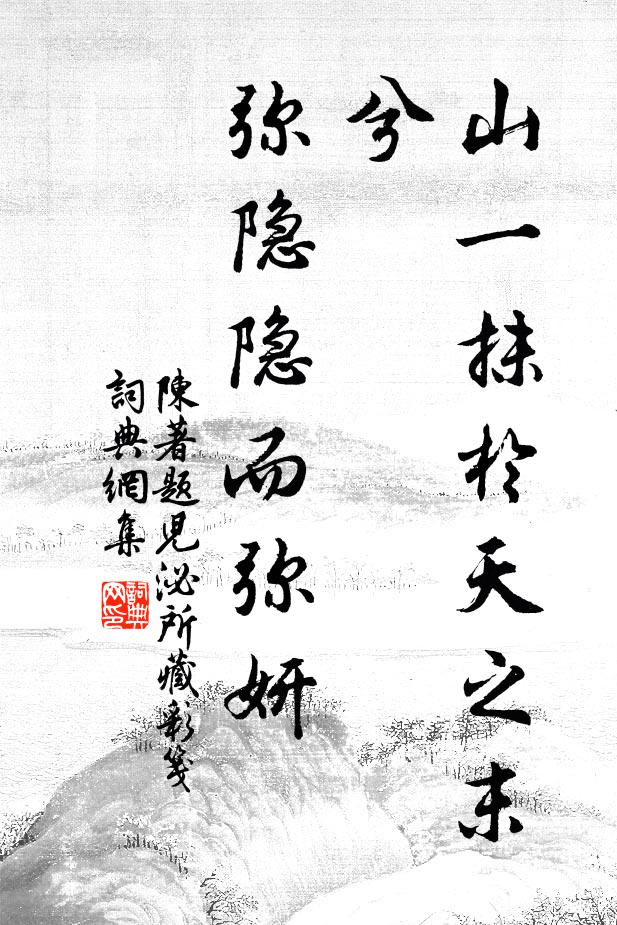 山一抹於天之末
兮
弥隐隐而弥妍
陳著題児泌所藏彩箋
詞典網集
詞典
网印